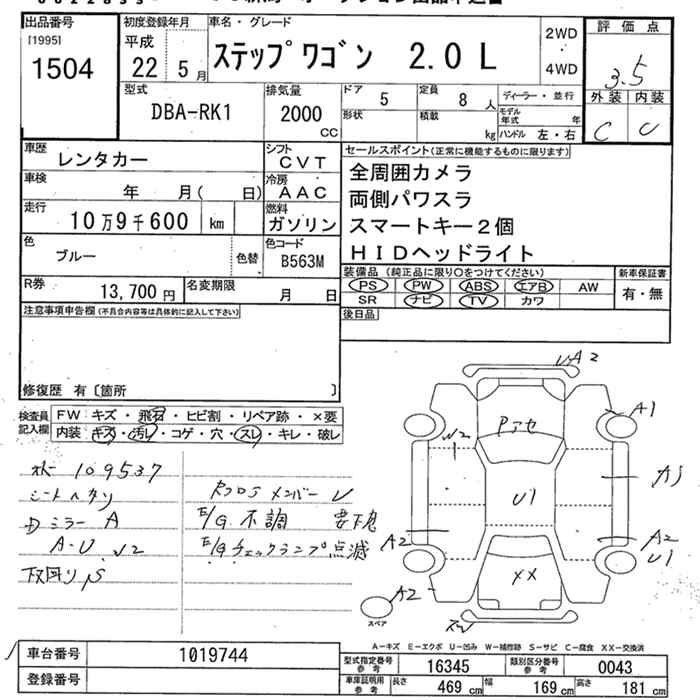 出品番号
[1995]
1504
初度登録年月
平成
22 5月
車名・グレード
ステップワゴン 2.0L
2WD
4WD
評価点
3.5
外装 内装
C
型式
DBA-RK1
排気量
2000
CC
ドア
5
形状
定員
8 人
積載
kg
ディーラー・並行
モデル年式 年
ハンドル 左・右
車歴
レンタカー
シフト
CVT
車検
年 月( 日)
冷房
AAC
走行
10万9千600 km
燃料
ガソリン
色
ブルー
色替
色コード
B563M
R券
13,700円
名変期限
月 日
セールスポイント(正常に機能するものに限ります)
全周囲カメラ
両側パワスラ
スマートキー2個
HIDヘッドライト
装備品 (純正品に限り○をつけてください)
PS PW ABS エアB AW
SR ナビ TV カワ
新車保証書
有・無
後日品
注意事項申告欄(不具合内容等は具体的に記入して下さい)
修復歴 有〔箇所 〕
検査員記入欄
FW キズ・飛石・ヒビ割・リペア跡・×要
内装 キズ・汚レ・コゲ・穴・スレ・キレ・破レ
109537
シートヘタリ
ミラーA
A-U
下回りS
メンバー U
E/G 不調
E/Gチェックランプ点滅
UA2
A1
A2
A2
U1
A2
U1
XX
スペア
A-キズ E-エクボ U-凹み W-補修跡 S-サビ C-腐食 XX-交換済
車台番号
1019744
登録番号
型式指定番号 参考
16345
類別区分番号 参考
0043
車庫証明用 参考
長さ 469 cm
幅 169 cm
高さ 181 cm